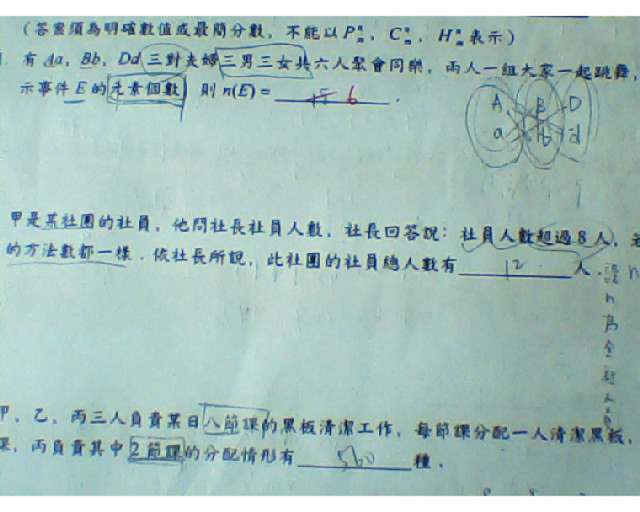 (答案須為明確數值或最簡分數，不能以 Pⁿₘ, Cⁿₘ, Hⁿₘ 表示)
有 Aa, Bb, Dd 三對夫婦三男三女共六人聚會同樂，兩人一組大家一起跳舞，
示事件 E 的元素個數，則 n(E) = 15 6 .
A B D
a b d
甲是某社團的社員，他問社長社員人數，社長回答說：社員人數超過 8 人，
的方法數都一樣．依社長所說，此社團的社員總人數有 12 人．
n
為
全
社
人
甲、乙、丙三人負責某日八節課的黑板清潔工作，每節課分配一人清潔黑板，
課，丙負責其中 2 節課的分配情形有 560 種．